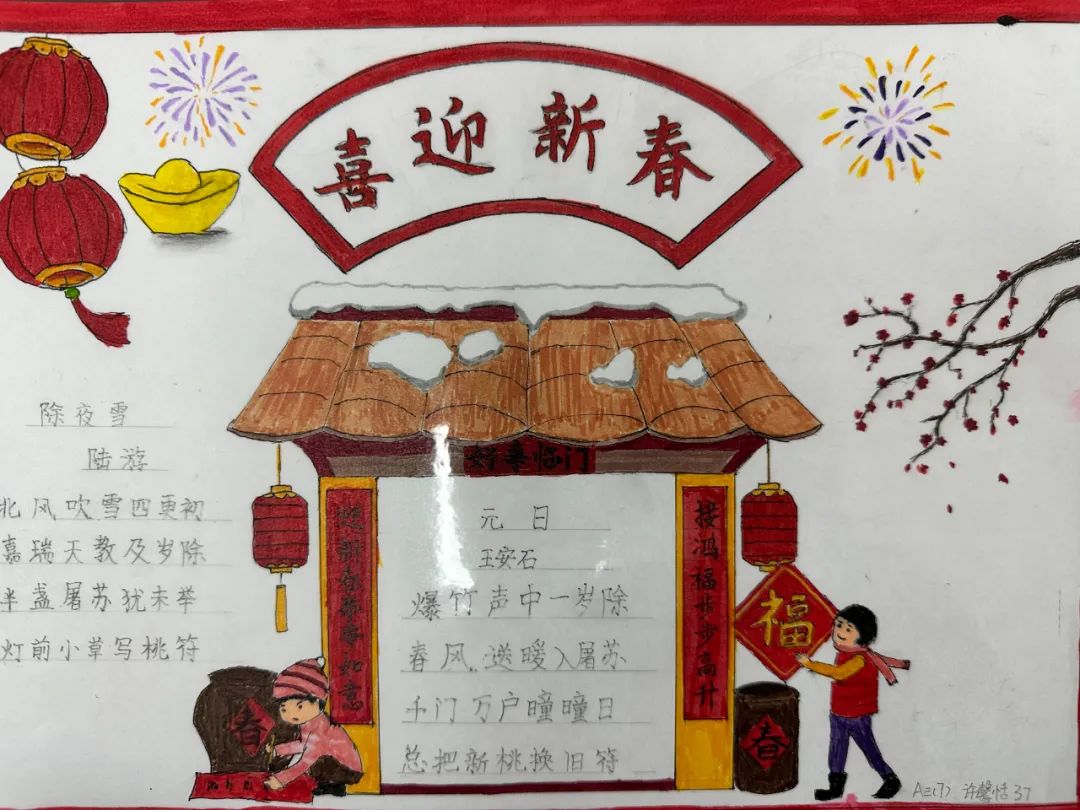 喜迎新春
除夜雪
陆游
北风吹雪四更初
嘉瑞天教及岁除
半盏屠苏犹未举
灯前小草写桃符
好事临门
迎新春事事如意
接鸿福步步高升
元日
王安石
爆竹声中一岁除
春风送暖入屠苏
千门万户曈曈日
总把新桃换旧符
福
春
春
许馨恬 37